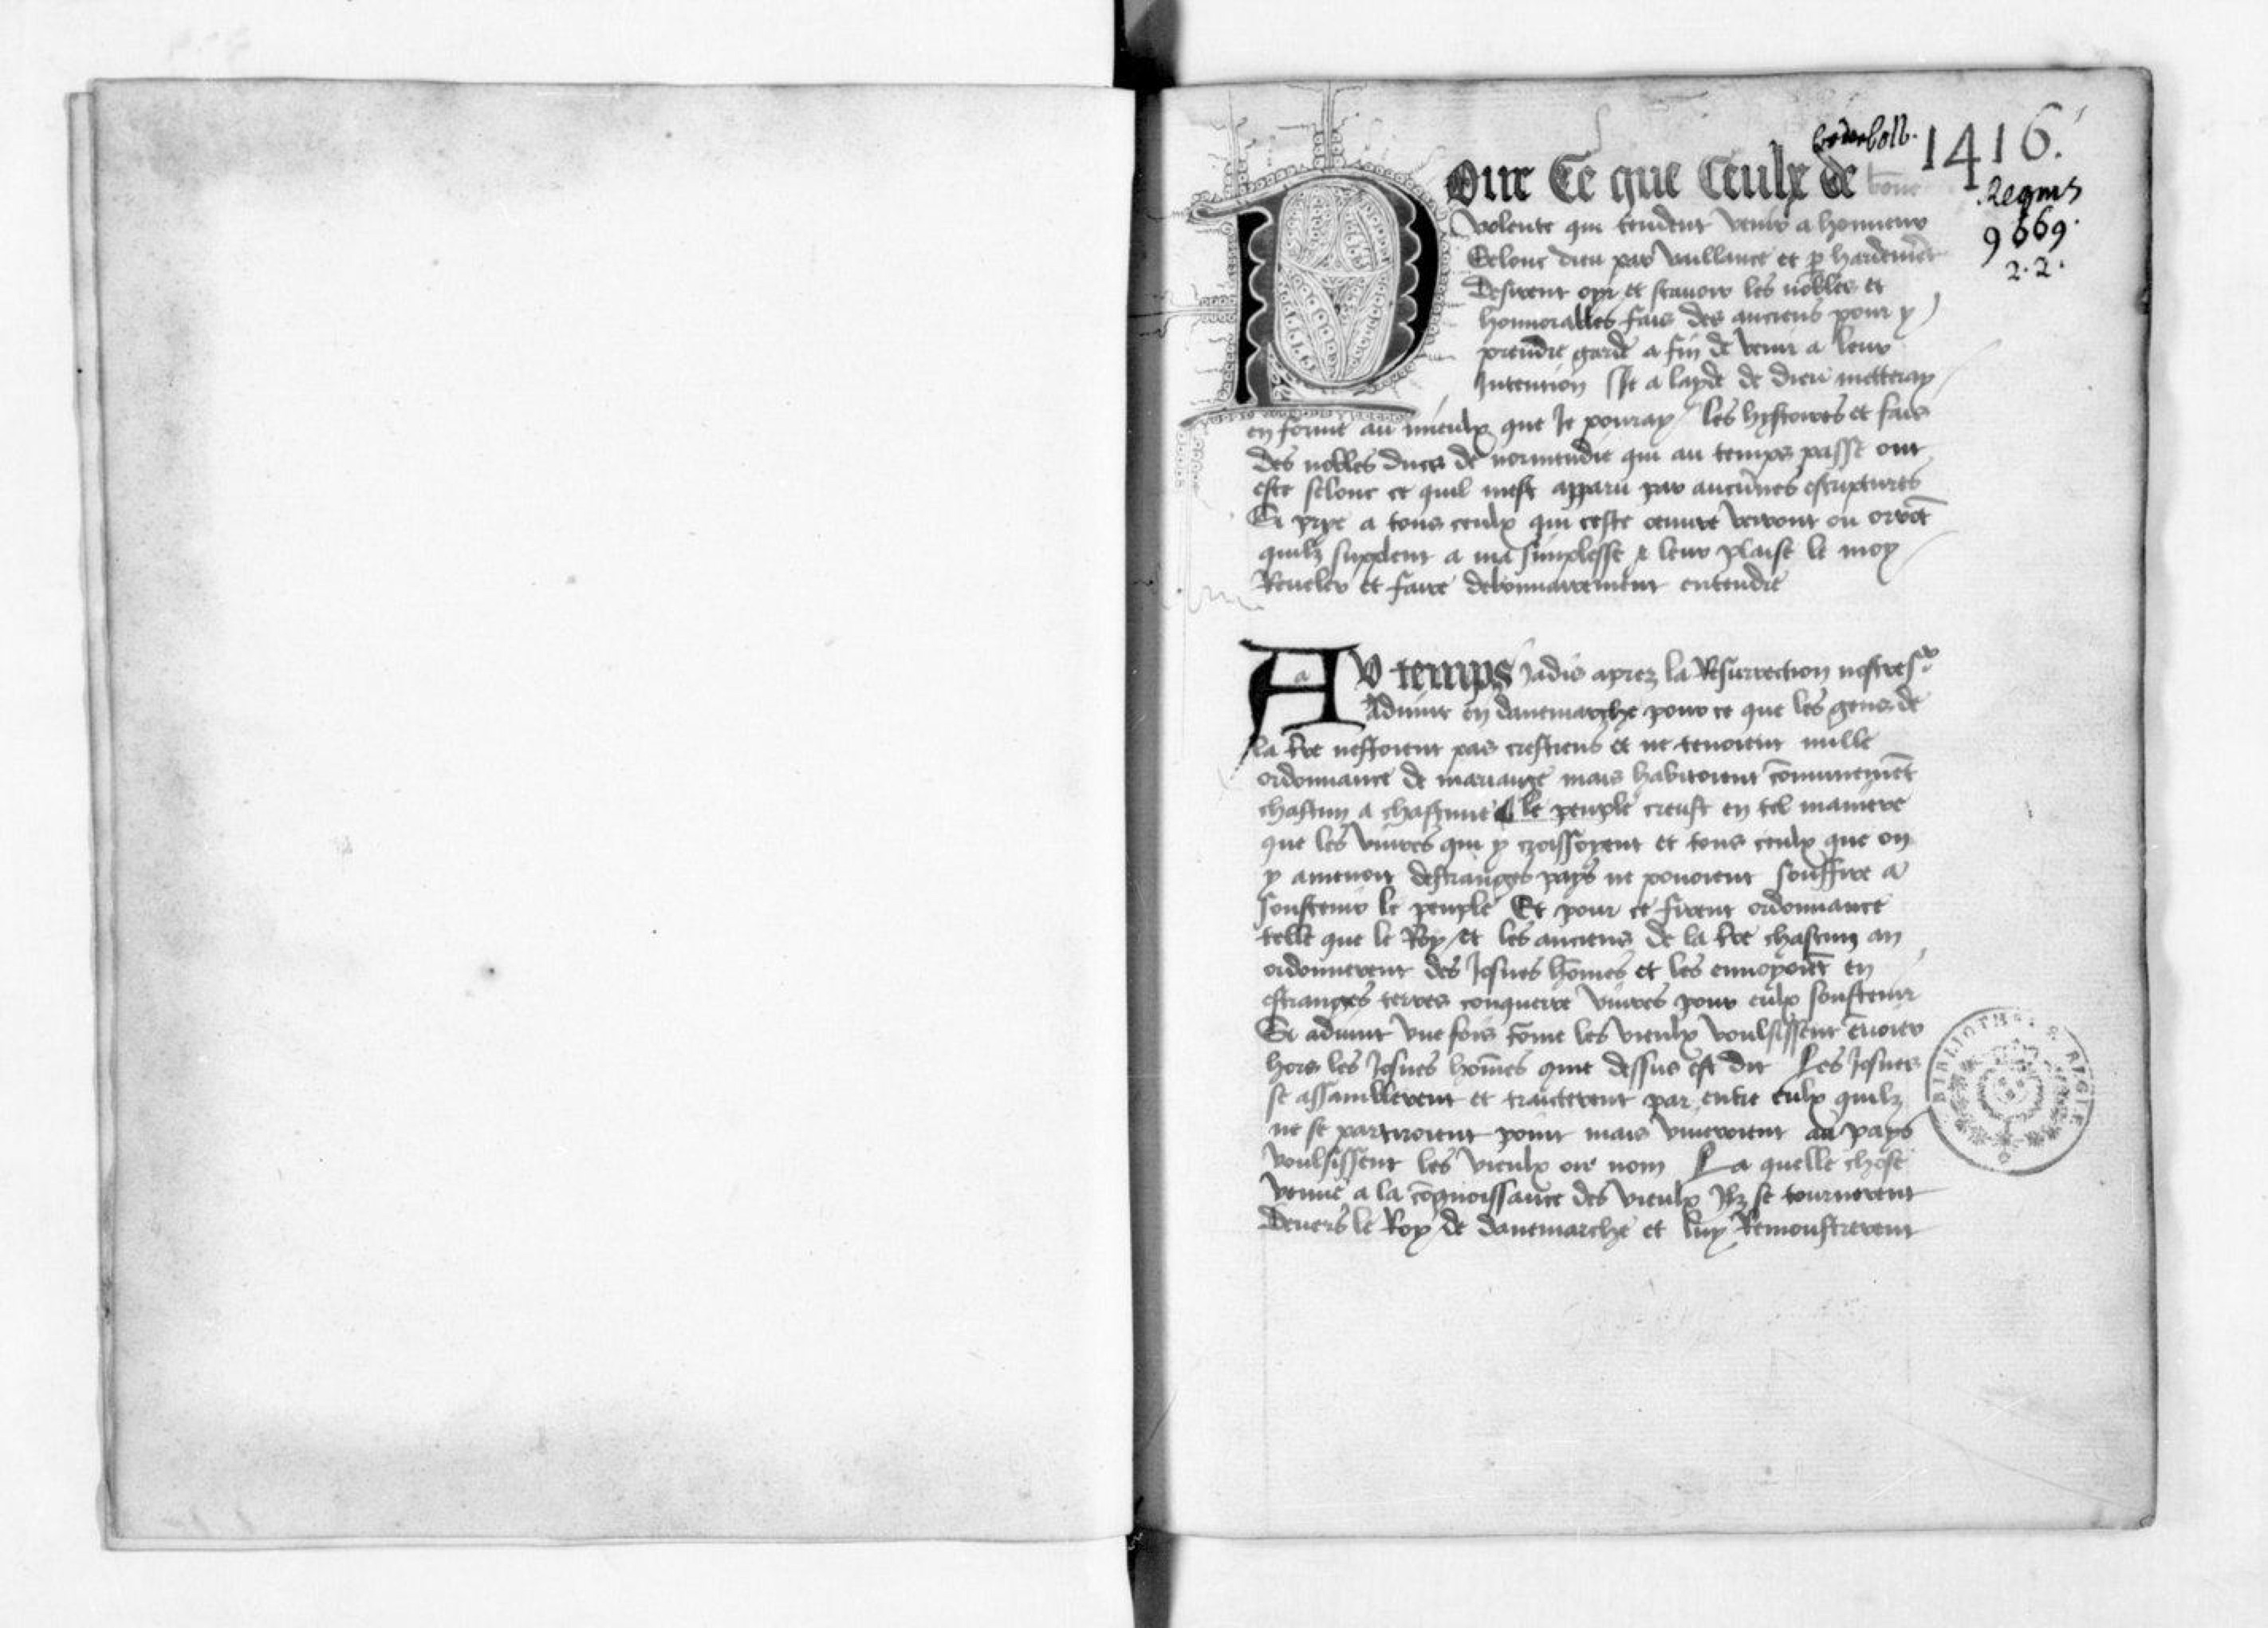 1416.
Regius
9669.
2.2.
Pour Ce que Ceulx de bōne
volente qui tendent venir a honneur
Selonc dieu par vaillance et p̲ hardemēt
Desirent oyr et scauoir les nobles et
honnorables fais des anciens pour y
prendre garde a fin de venir a leur
Intention Je a layde de dieu metteray
en forme au mieulx que Je pouray les hystoires et fais
des nobles ducs de normendie qui au temps passe ont
este selonc ce quil mest apparu par aucūnes escriptures
Si prye a tous ceulx qui ceste oeuure verront ou orrōt
quilz suppleent a ma simplesse & leur plaise le moy
Reueler et faire debonnairement entendre
AU temps Jadis aprez la Resurrection nostre sr
Aduint en danemarche pour ce que les gens de
la tr̄e nestoient pas crestiens et ne tenoient nulle
ordonnance de mariaige mais habitoient cōmunemēt
chascun a chascune le peuple creust en tel maniere
que les viures qui y croissoyent et tous ceulx que on
y amenoit destranges pays ne pouoient souffire a
soustenir le peuple Et pour ce firent ordonnance
telle que le Roy et les anciens de la tr̄e chascun an
ordonnerent des Josnes hōmes et les enuoyoiēt en
estranges terres conquerre viures pour eulx soustenir
Si aduint vne fois cōme les vieulx voulsissent ēuoier
hors les Josnes hōmes que dessus est dit Les Josnes
se assamblerent et traicterent par entre eulx quilz
ne se partiroient point mais viueroient au pays
voulsissent les vieulx ou nom La quelle chose
venue a la cōgnoissance des vieulx Ilz se tournerent
Deuers le Roy de danemarche et luy Remonstrerent
BIBLIOTHECÆ REGIÆ